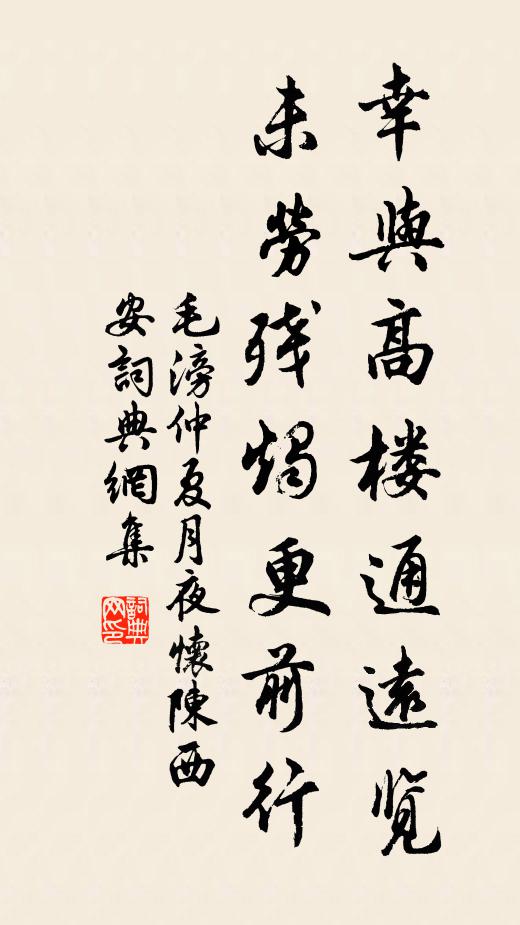 幸與高楼通遠覧
未勞残燭更前行
毛滂仲夏月夜懷陳西
安詞典網集
詞典网印